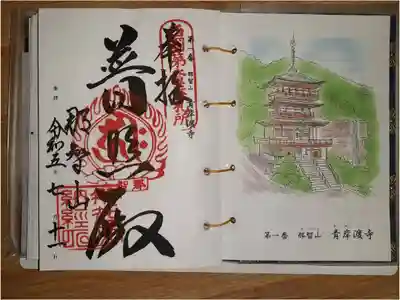 第一番 那智山 青岸渡寺
奉拝
普照殿
那智山
令和五年七月十一日
第一番 那智山 青岸渡寺